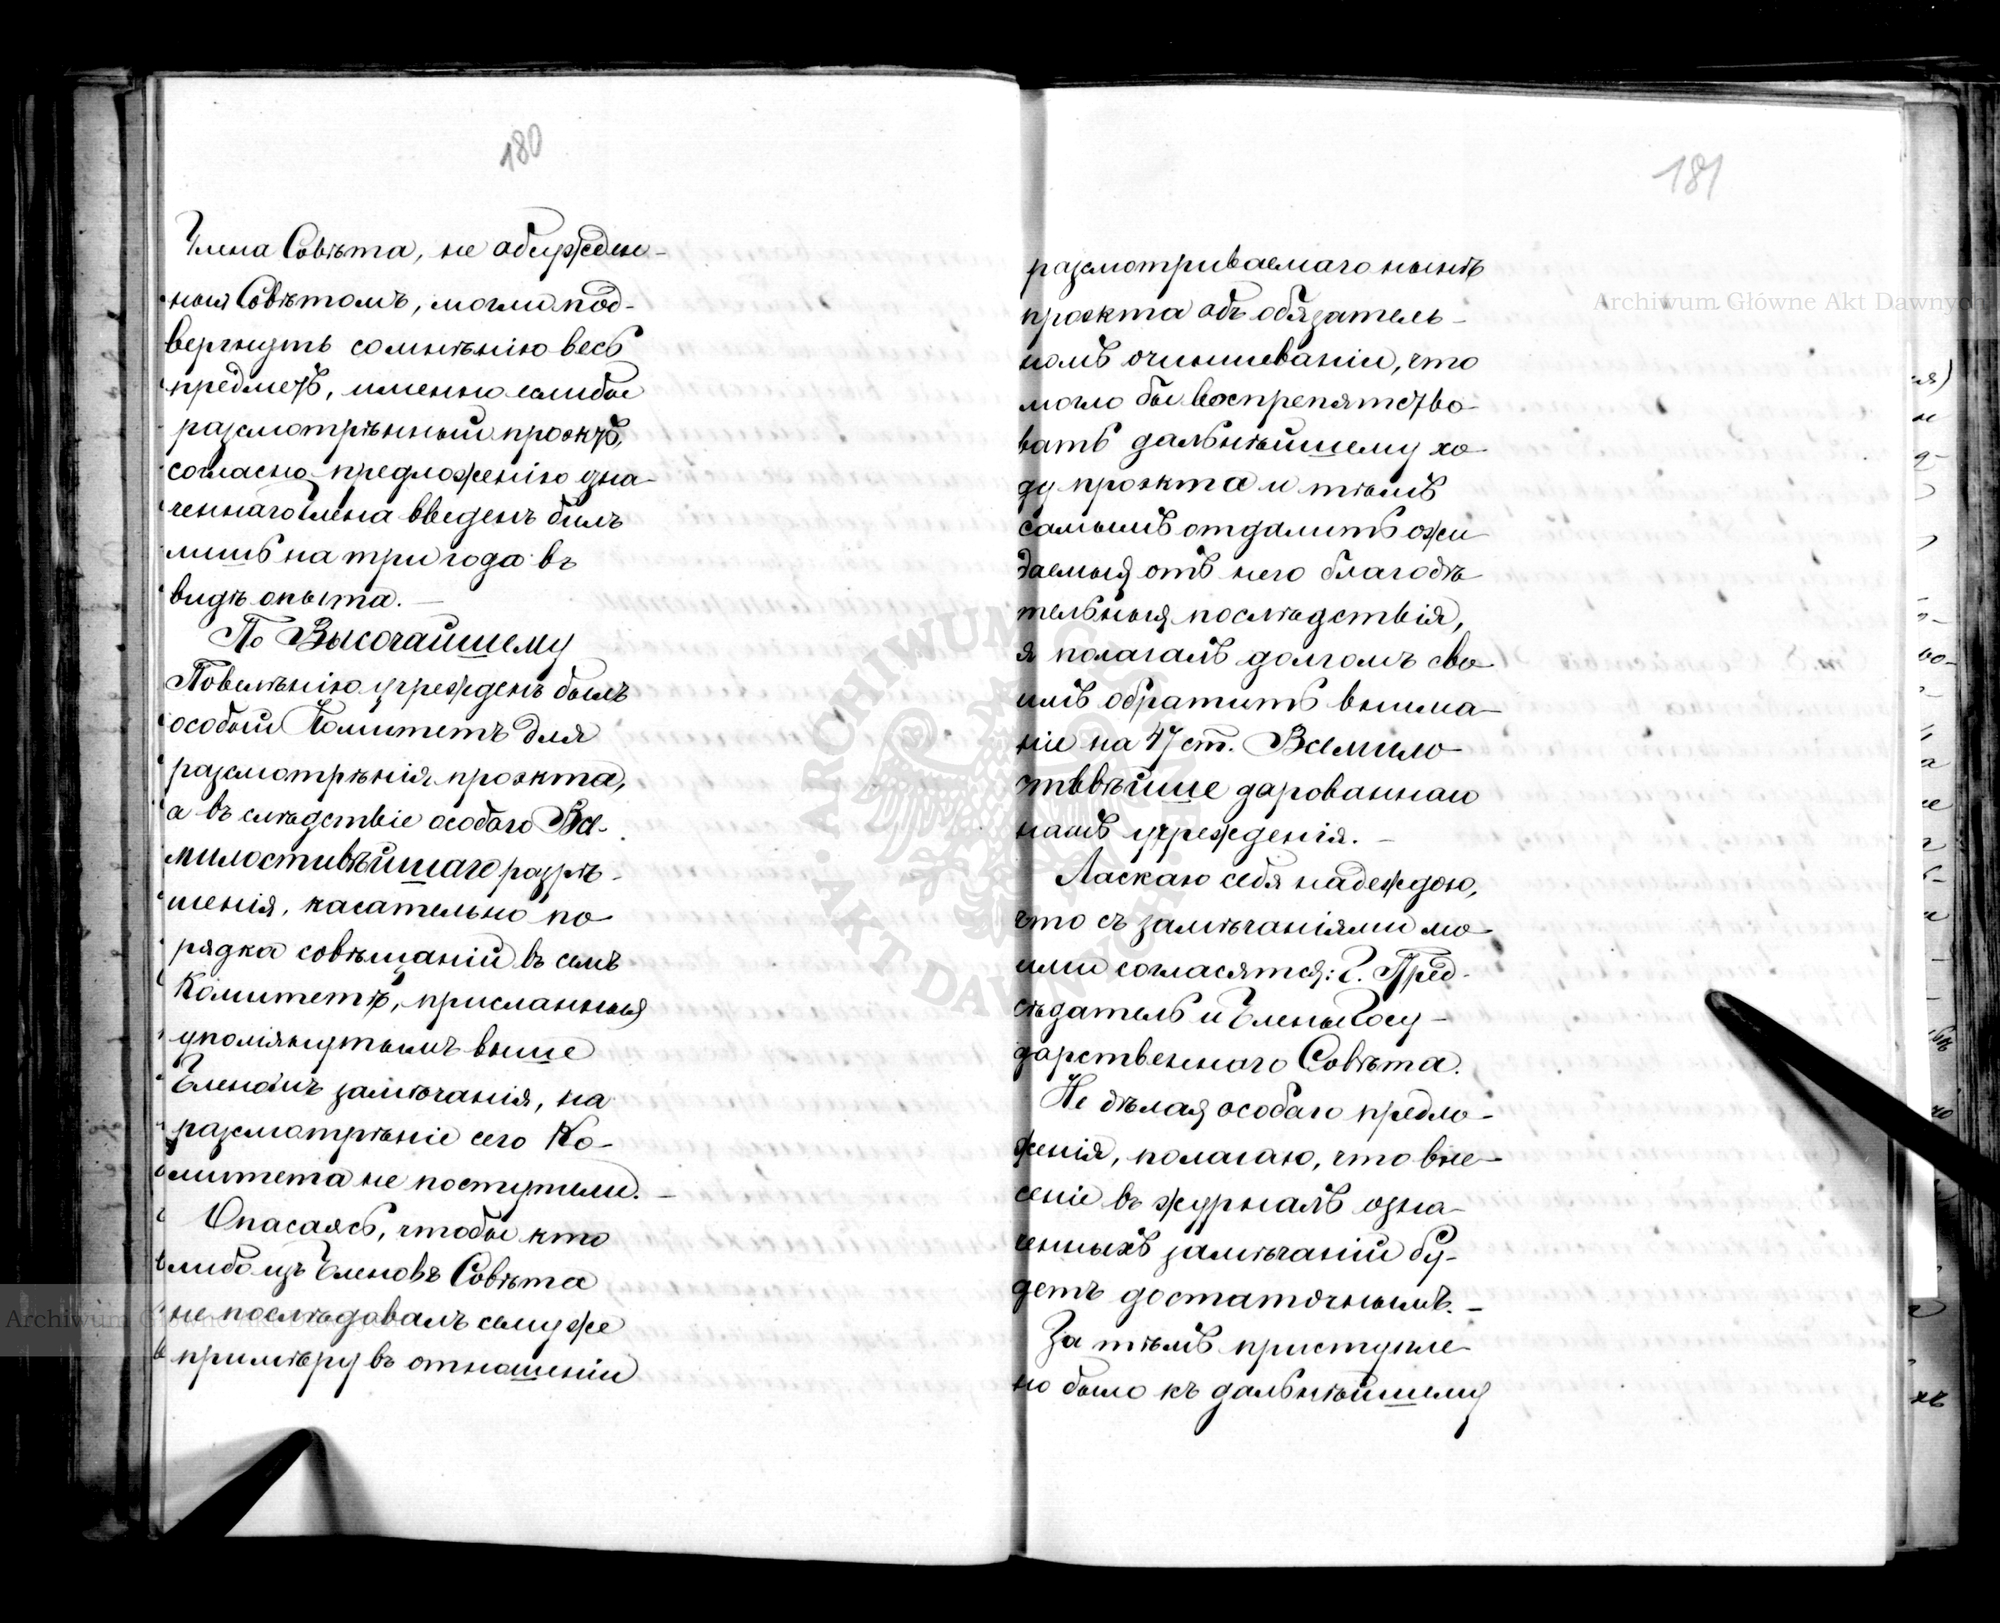 180
Члена Совѣта, не обсужден-
ныя Совѣтомъ, могли под-
вергнуть сомнѣнію весь
предметъ, именно еслибы
разсмотрѣнный проэктъ,
согласно предложенію озна-
ченнаго Члена введенъ былъ
лишь на три года въ
видѣ опыта. —
По Высочайшему
Повелѣнію учрежденъ былъ
особый Комитетъ для
разсмотрѣнія проэкта,
а въ слѣдствіе особаго Все-
милостивѣйшаго разрѣ-
шенія, касательно по
рядка совѣщаній въ семъ
Комитетѣ, присланныя
упомянутымъ выше
Членомъ замѣчанія, на
разсмотрѣніе сего Ко-
митета не поступили. —
Опасаясь, чтобы кто
либо изъ Членовъ Совѣта
не послѣдовалъ сему же
примѣру въ отношеніи
181
разсмотриваемаго нынѣ
проэкта объ обязатель-
номъ очиншеваніи, что
могло бы воспрепятство-
вать дальнѣйшему хо-
ду проэкта и тѣмъ
самымъ отдалить ожи
даемыя отъ него благодѣ
тельныя послѣдствія,
я полагалъ долгомъ сво
имъ обратить внима-
ніе на 47 ст. Всемило
стивѣйше дарованнаго
намъ учрежденія. —
Ласкаю себя надеждою,
что съ замѣчаніями мо
ими согласятся: Г. Пред-
сѣдатель и Члены Госу-
дарственнаго Совѣта.
Не дѣлая особаго предло-
женія, полагаю, что вне-
сеніе въ журналъ озна-
ченныхъ замѣчаній бу-
детъ достаточнымъ. —
За тѣмъ приступле
но было къ дальнѣйшему
Archiwum Główne Akt Dawnych
ARCHIWUM GŁÓWNE AKT DAWNYCH